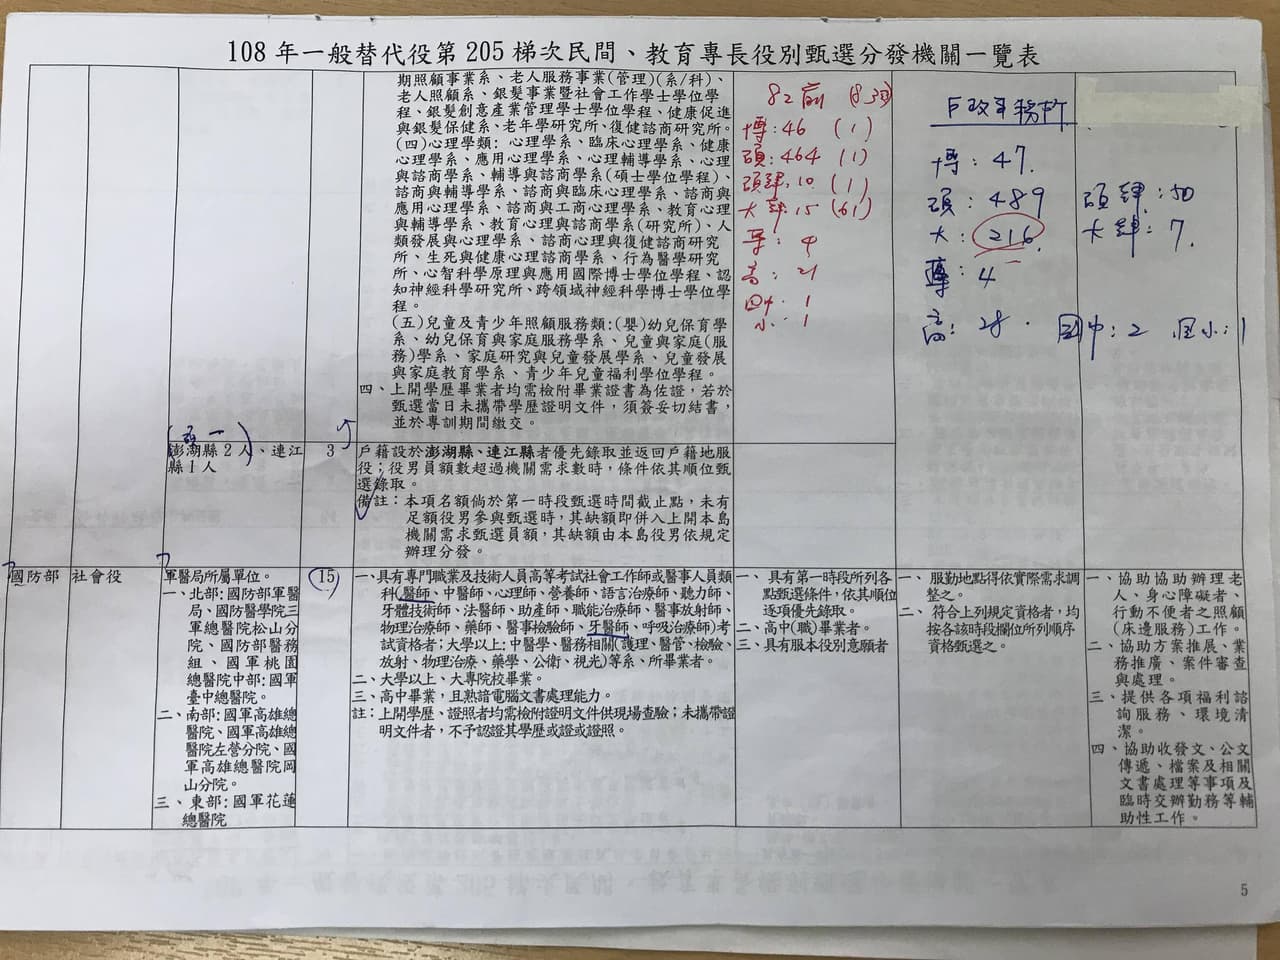 108 年一般替代役第 205 梯次民間、教育專長役別甄選分發機關一覽表
期照顧事業系、老人服務事業(管理)(系/科)、
老人照顧系、銀髮事業暨社會工作學士學位學
程、銀髮創意產業管理學士學位學程、健康促進
與銀髮保健系、老年學研究所、復健諮商研究所。
(四)心理學類：心理學系、臨床心理學系、健康
心理學系、應用心理學系、心理輔導學系、心理
與諮商學系、輔導與諮商學系(碩士學位學程)、
諮商與輔導學系、諮商與臨床心理學系、諮商與
應用心理學系、諮商與工商心理學系、教育心理
與輔導學系、教育心理與諮商學系(研究所)、人
類發展與心理學系、諮商心理與復健諮商研究
所、生死與健康心理諮商學系、行為醫學研究
所、心智科學原理與應用國際博士學位學程、認
知神經科學研究所、跨領域神經科學博士學位學
程。
(五)兒童及青少年照顧服務類:(嬰)幼兒保育學
系、幼兒保育與家庭服務學系、兒童與家庭(服
務)學系、家庭研究與兒童發展學系、兒童發展
與家庭教育學系、青少年兒童福利學位學程。
四、上開學歷畢業者均需檢附畢業證書為佐證，若於
甄選當日未攜帶學歷證明文件，須簽妥切結書，
並於專訓期間繳交。
博:46 (1)
碩:464 (1)
碩肄:10 (1)
大肄:15 (61)
專 4
高:21
國中:1
小:1
戶政事務所
博:47.
碩:489
大:216.
專:4
高:28.
碩肄:50
大肄:7.
國中:2 國小:1
澎湖縣 2 人、連江
縣 1 人
3
戶籍設於澎湖縣、連江縣者優先錄取並返回戶籍地服
役；役男員額數超過機關需求數時，條件依其順位甄
選錄取。
備註：本項名額倘於第一時段甄選時間截止點，未有
足額役男參與甄選時，其缺額即併入上開本島
機關需求甄選員額，其缺額由本島役男依規定
辦理分發。
國防部
社會役
軍醫局所屬單位。
一、北部:國防部軍醫
局、國防醫學院三
軍總醫院松山分
院、國防部醫務
組、國軍桃園
總醫院中部:國軍
臺中總醫院。
二、南部:國軍高雄總
醫院、國軍高雄總
醫院左營分院、國
軍高雄總醫院岡
山分院。
三、東部:國軍花蓮
總醫院
15
一、具有專門職業及技術人員高等考試社會工作師或醫事人員類
科(醫師、中醫師、心理師、營養師、語言治療師、聽力師、
牙體技術師、法醫師、助產師、職能治療師、醫事放射師、
物理治療師、藥師、醫事檢驗師、牙醫師、呼吸治療師)考
試資格者；大學以上:中醫學、醫務相關(護理、醫管、檢驗、
放射、物理治療、藥學、公衛、視光)等系、所畢業者。
二、大學以上、大專院校畢業。
三、高中畢業，且熟諳電腦文書處理能力。
註：上開學歷、證照者均需檢附證明文件供現場查驗；未攜帶證
明文件者，不予認證其學歷或證或證照。
一、具有第一時段所列各
點甄選條件，依其順位
逐項優先錄取。
二、高中(職)畢業者。
三、具有服本役別意願者
一、服勤地點得依實際需求調
整之。
二、符合上列規定資格者，均
按各該時段欄位所列順序
資格甄選之。
一、協助協助辦理老
人、身心障礙者、
行動不便者之照顧
(床邊服務)工作。
二、協助方案推展、業
務推廣、案件審查
與處理。
三、提供各項福利諮
詢服務、環境清
潔。
四、協助收發文、公文
傳遞、檔案及相關
文書處理等事項及
臨時交辦勤務等輔
助性工作。
5